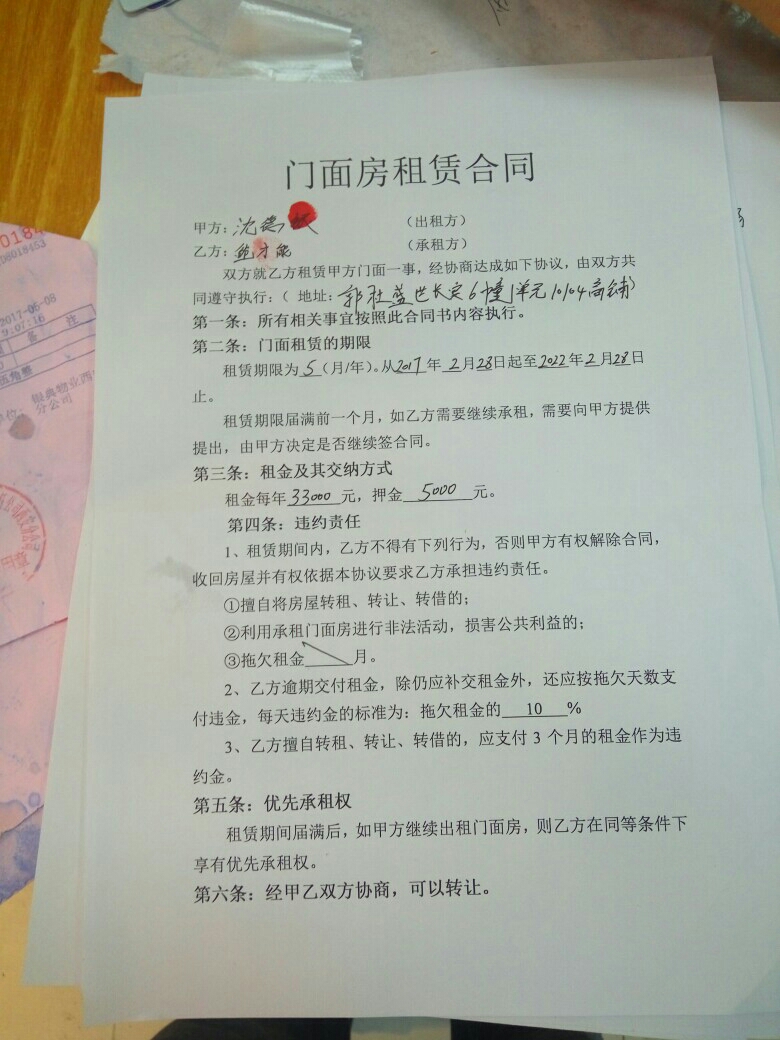 门面房租赁合同
甲方：沈 （出租方）
乙方：鲍才能 （承租方）
双方就乙方租赁甲方门面一事，经协商达成如下协议，由双方共
同遵守执行：（ 地址：郭杜蓝 长定6幢1单元10104商铺）
第一条：所有相关事宜按照此合同书内容执行。
第二条：门面租赁的期限
租赁期限为 5 (月/年)。从2017年 2月28日起至2022年2月28日
止。
租赁期限届满前一个月，如乙方需要继续承租，需要向甲方提供
提出，由甲方决定是否继续签合同。
第三条：租金及其交纳方式
租金每年33000元，押金 5000 元。
第四条：违约责任
1、租赁期间内，乙方不得有下列行为，否则甲方有权解除合同，
收回房屋并有权依据本协议要求乙方承担违约责任。
①擅自将房屋转租、转让、转借的；
②利用承租门面房进行非法活动，损害公共利益的；
③拖欠租金____月。
2、乙方逾期交付租金，除仍应补交租金外，还应按拖欠天数支
付违金，每天违约金的标准为：拖欠租金的 10 %
3、乙方擅自转租、转让、转借的，应支付 3 个月的租金作为违
约金。
第五条：优先承租权
租赁期间届满后，如甲方继续出租门面房，则乙方在同等条件下
享有优先承租权。
第六条：经甲乙双方协商，可以转让。
0184
08018453
2017-06-08
9:07:16
备 注
银典物业西
分公司
用章